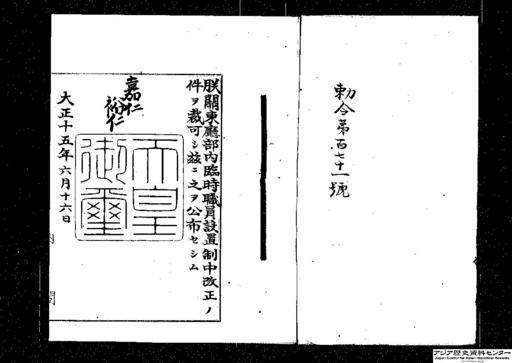 勅令第百七十一號
朕關東廳部内臨時職員設置制中改正ノ
件ヲ裁可シ茲ニ之ヲ公布セシム
嘉仁
裕仁
天皇
御璽
大正十五年六月十六日
内閣
アジア歴史資料センター
Japan Center for Asian Historical Records